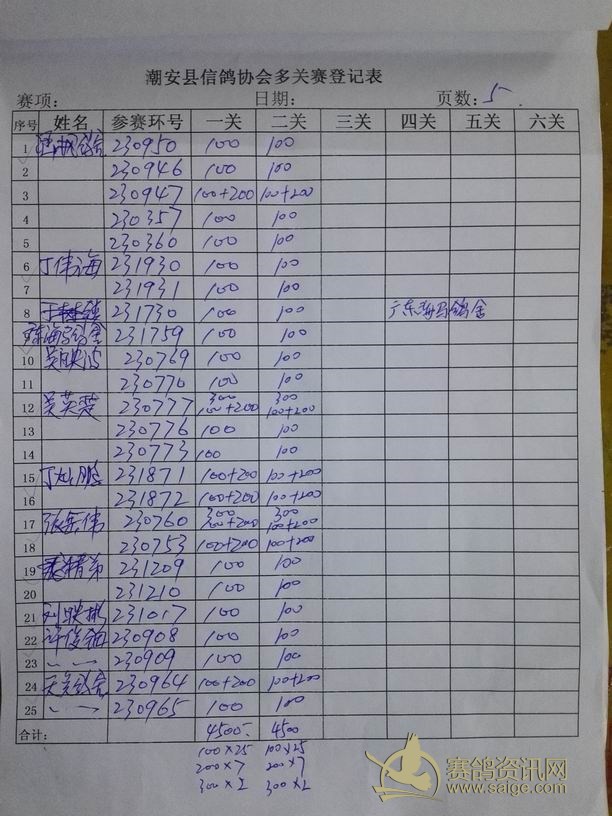 潮安县信鸽协会多关赛登记表
赛项: 日期: 页数: 5
序号 姓名 参赛环号 一关 二关 三关 四关 五关 六关
1 鸽舍 230950 100 100
2 230946 100 100
3 230947 100+200 100+200
4 230357 100 100
5 230360 100 100
6 丁伟海 231930 100 100
7 231931 100 100
8 231730 100 100 广东海马鸽舍
231759 100 100
10 230769 100 100
11 230770 100 100
12 吴英楚 230777 300 100+200 300 100+200
13 230776 100 100
14 230773 100 100
15 丁灿鹏 231871 100+200 100+200
16 231872 100+200 100+200
17 张岳伟 230760 300 100+200 300 100+200
18 230753 100+200 100+200
19 231209 100 100
20 231210 100 100
21 刘映彬 231017 100 100
22 230908 100 100
23 230909 100 100
24 鸽舍 230964 100+200 100+200
25 230965 100 100
合计: 4500 4500
100×25 100×25
200×7 200×7
300×2 300×2
赛鸽资讯网
www.saige.com